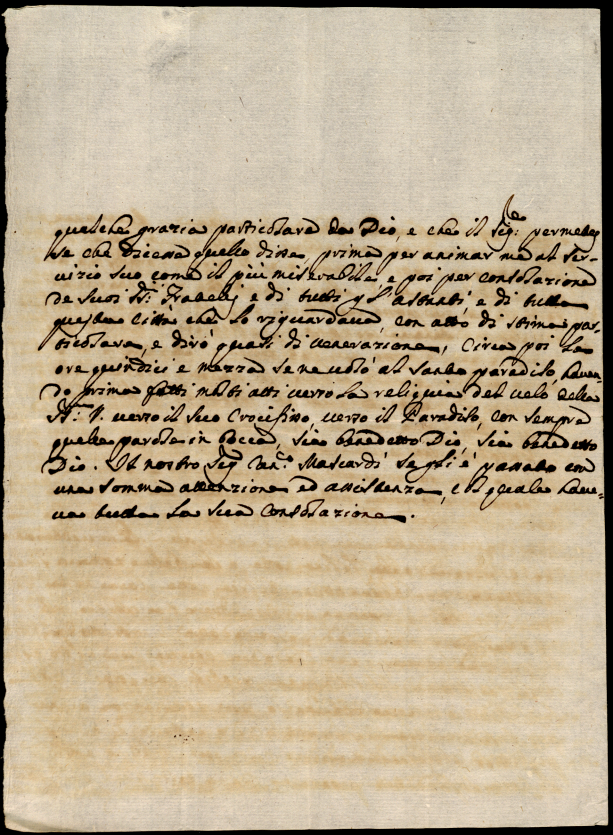 qualche grazia particolare da Dio, e che il Sig.re permetes
se che dicesse quello disse, prima per animar me al ser-
vizio suo come il più miserabile, e poi per consolazione
de suoi Sri. Fratelli e di tutti gl'astanti, e di tutta
questa Città che lo riguardava, con atto di stima par-
ticolare, e dirò quasi di venerazione, Circa poi le
ore quindici e mezza se ne volò al Santo paradiso, haven-
do prima fatti molti atti verso la reliquia del velo della
S. V. verso il suo Crocifisso, verso il Paradiso, con sempre
quelle parole in bocca, sia benedetto Dio, sia benedetto
Dio. Il nostro Sig. Can.co Mascardi se gli è passato con
una somma attenzione ed assistenza, e il quale have-
va tutta la sua Consolazione.